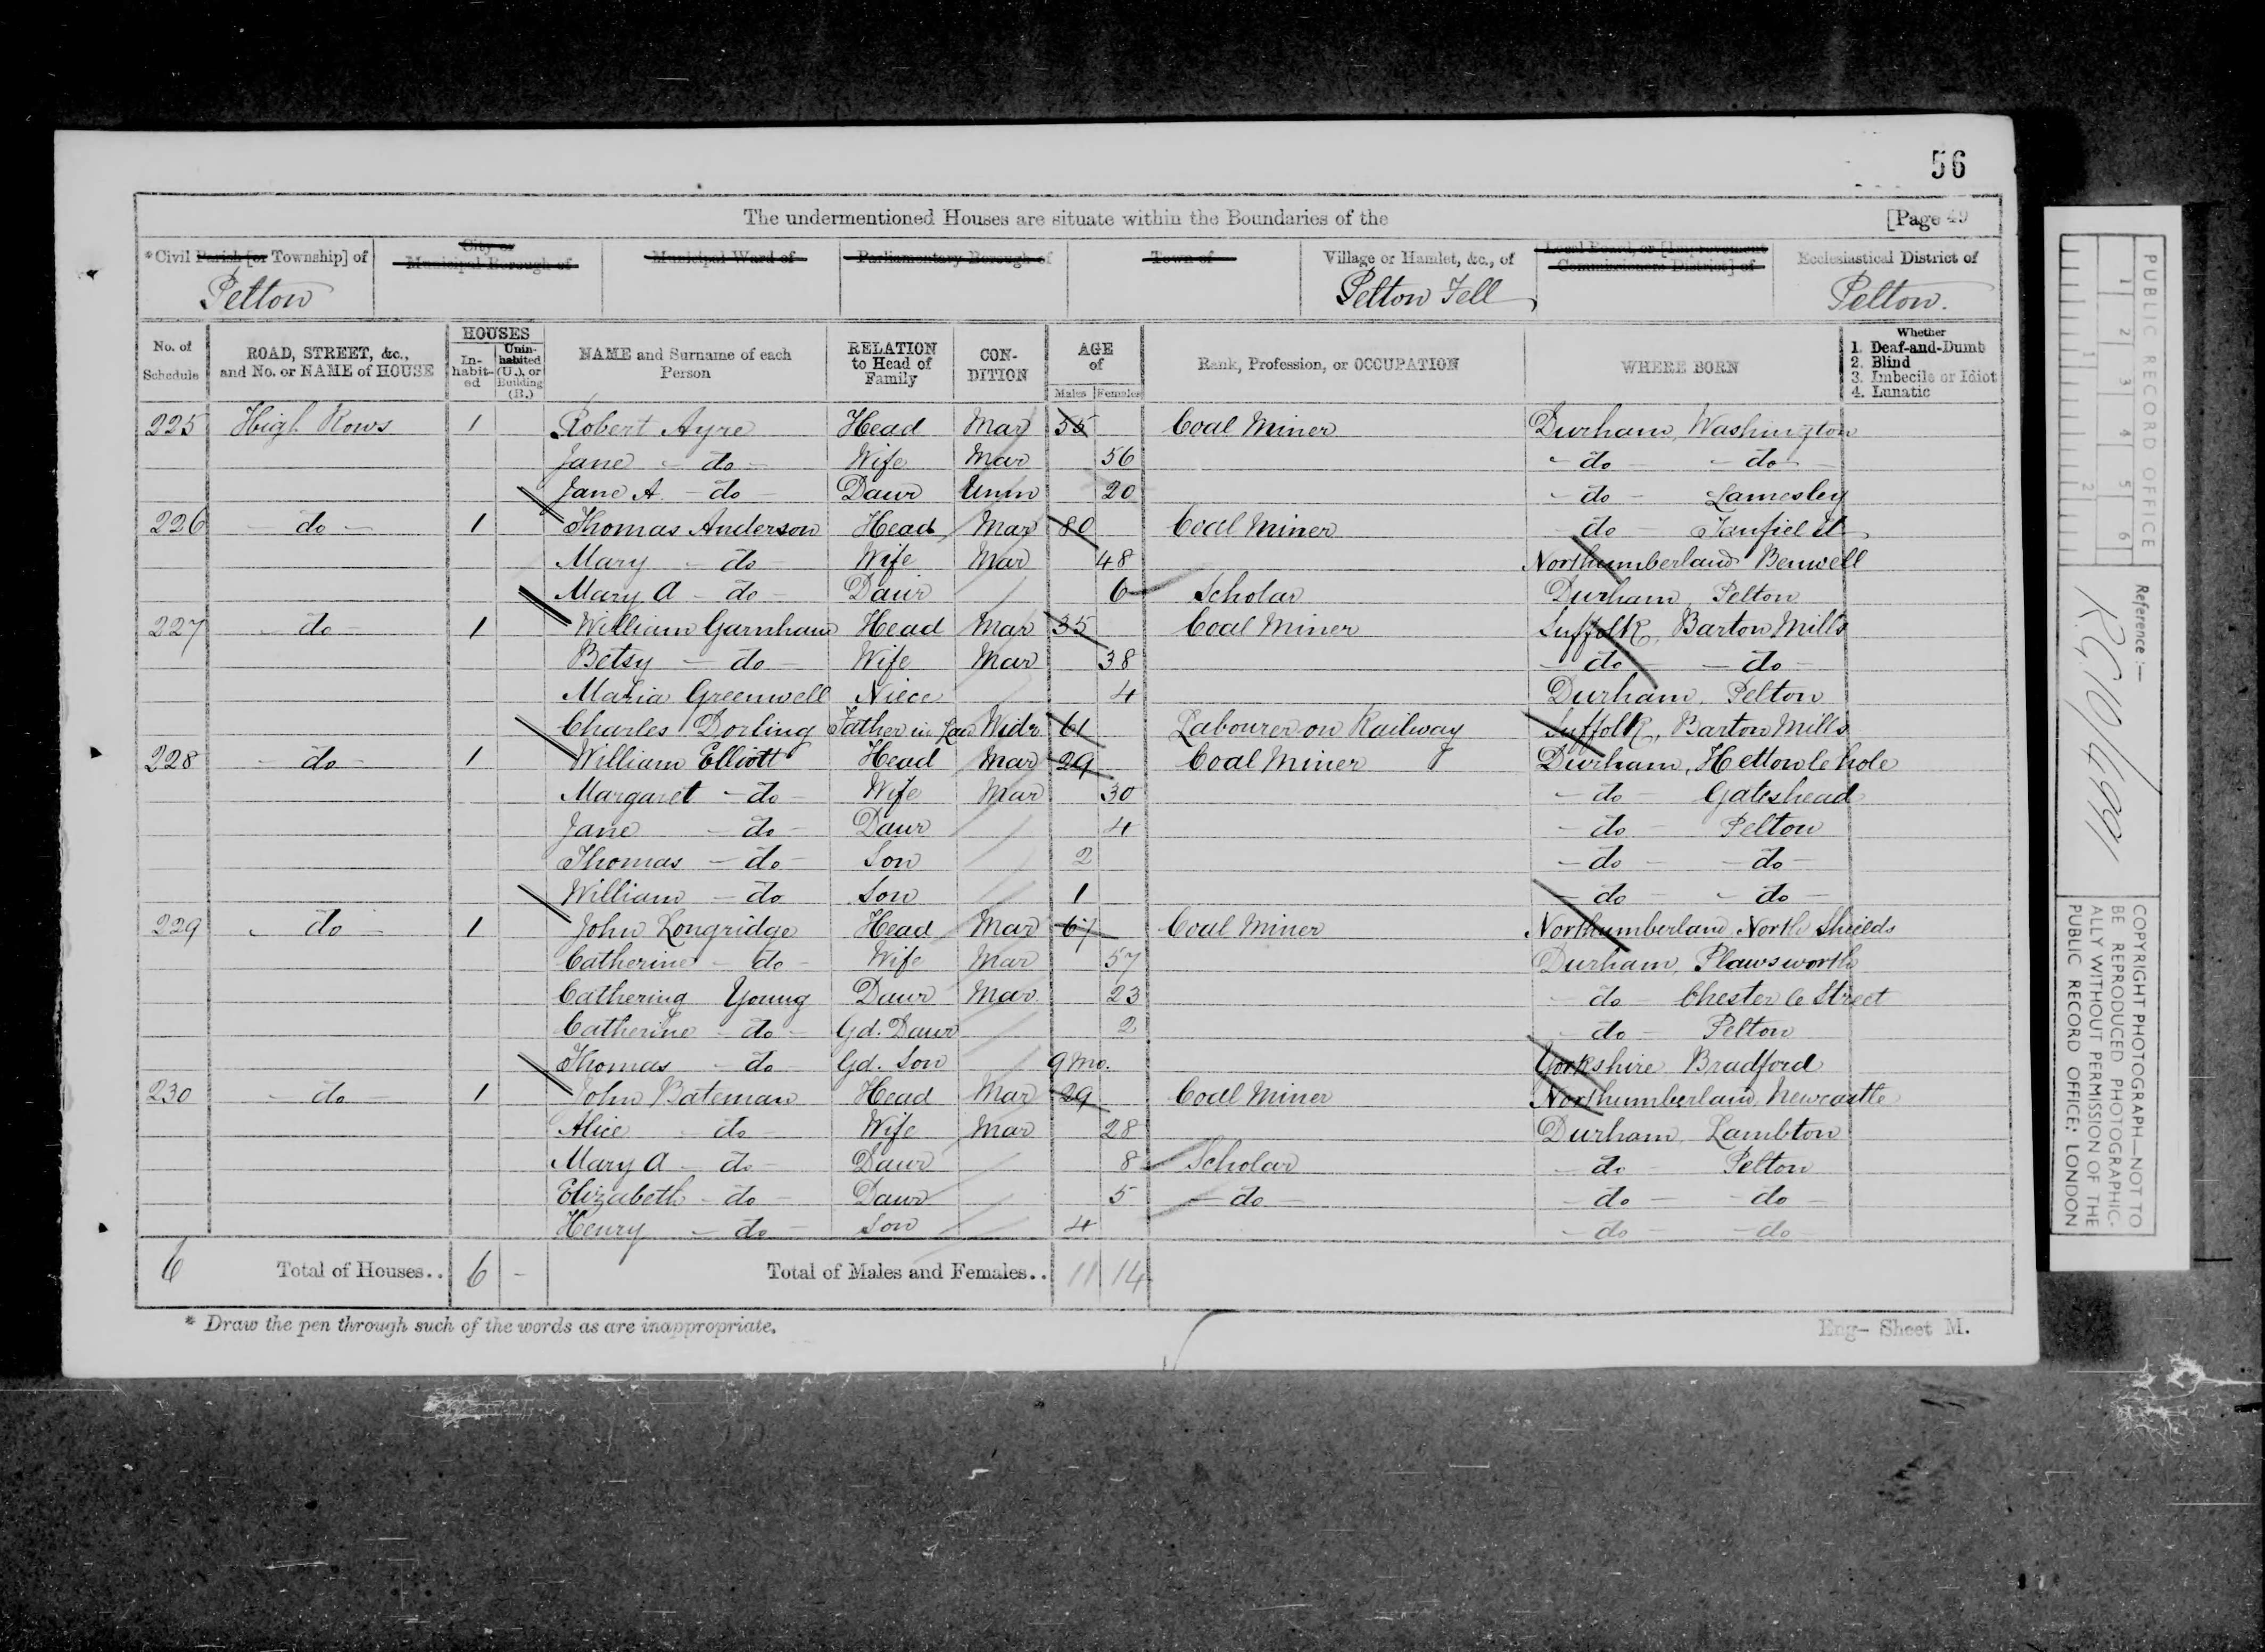 56
The undermentioned Houses are situate within the Boundaries of the [Page 49
*Civil Parish [or Township] of City or Municipal Borough of Municipal Ward of Parliamentary Borough of Town of Village or Hamlet, &c., of Local Board, or [Improvement Commissioners District] of Ecclesiastical District of
Pelton Pelton Fell Pelton.
No. of Schedule ROAD, STREET, &c., and No. or NAME of HOUSE HOUSES Inhabited Uninhabited (U.), or Building (B.) NAME and Surname of each Person RELATION to Head of Family CONDITION AGE of Males Females Rank, Profession, or OCCUPATION WHERE BORN Whether 1. Deaf-and-Dumb 2. Blind 3. Imbecile or Idiot 4. Lunatic
225 High Rows 1 Robert Ayre Head Mar 55 Coal Miner Durham, Washington
Jane - do - Wife Mar 56 - do - - do -
Jane A. - do - Daur Unm 20 - do - Lamesley
226 - do - 1 Thomas Anderson Head Mar 80 Coal Miner - do - Tanfield
Mary - do - Wife Mar 48 Northumberland Benwell
Mary A - do - Daur 6 Scholar Durham, Pelton
227 - do - 1 William Garnham Head Mar 35 Coal Miner Suffolk, Barton Mills
Betsy - do - Wife Mar 38 - do - - do -
Maria Greenwell Niece 4 Durham, Pelton
Charles Dorling Father in Law Widr 61 Labourer on Railway Suffolk, Barton Mills
228 - do - 1 William Elliott Head Mar 29 Coal Miner Durham, Hetton le hole
Margaret - do - Wife Mar 30 - do - Gateshead
Jane - do - Daur 4 - do - Pelton
Thomas - do - Son 2 - do - - do -
William - do Son 1 - do - - do -
229 - do - 1 John Longridge Head Mar 67 Coal Miner Northumberland North Shields
Catherine - do - Wife Mar 57 Durham, Plawsworth
Catherine Young Daur Mar 23 - do - Chester le Street
Catherine - do - Gd. Daur 2 - do - Pelton
Thomas - do Gd. Son 9 Mo. Yorkshire Bradford
230 - do - 1 John Bateman Head Mar 29 Coal Miner Northumberland, Newcastle
Alice - do - Wife Mar 28 Durham, Lambton
Mary A - do - Daur 8 Scholar - do - Pelton
Elizabeth - do - Daur 5 - do - - do - - do -
Henry - do - Son 4 - do - - do -
6 Total of Houses.. 6 - Total of Males and Females.. 11 14
* Draw the pen through such of the words as are inappropriate. Eng- Sheet M.
PUBLIC RECORD OFFICE
1 2 3 4 5 6
1 2
Reference :-
COPYRIGHT PHOTOGRAPH—NOT TO
BE REPRODUCED PHOTOGRAPHIC-
ALLY WITHOUT PERMISSION OF THE
PUBLIC RECORD OFFICE, LONDON